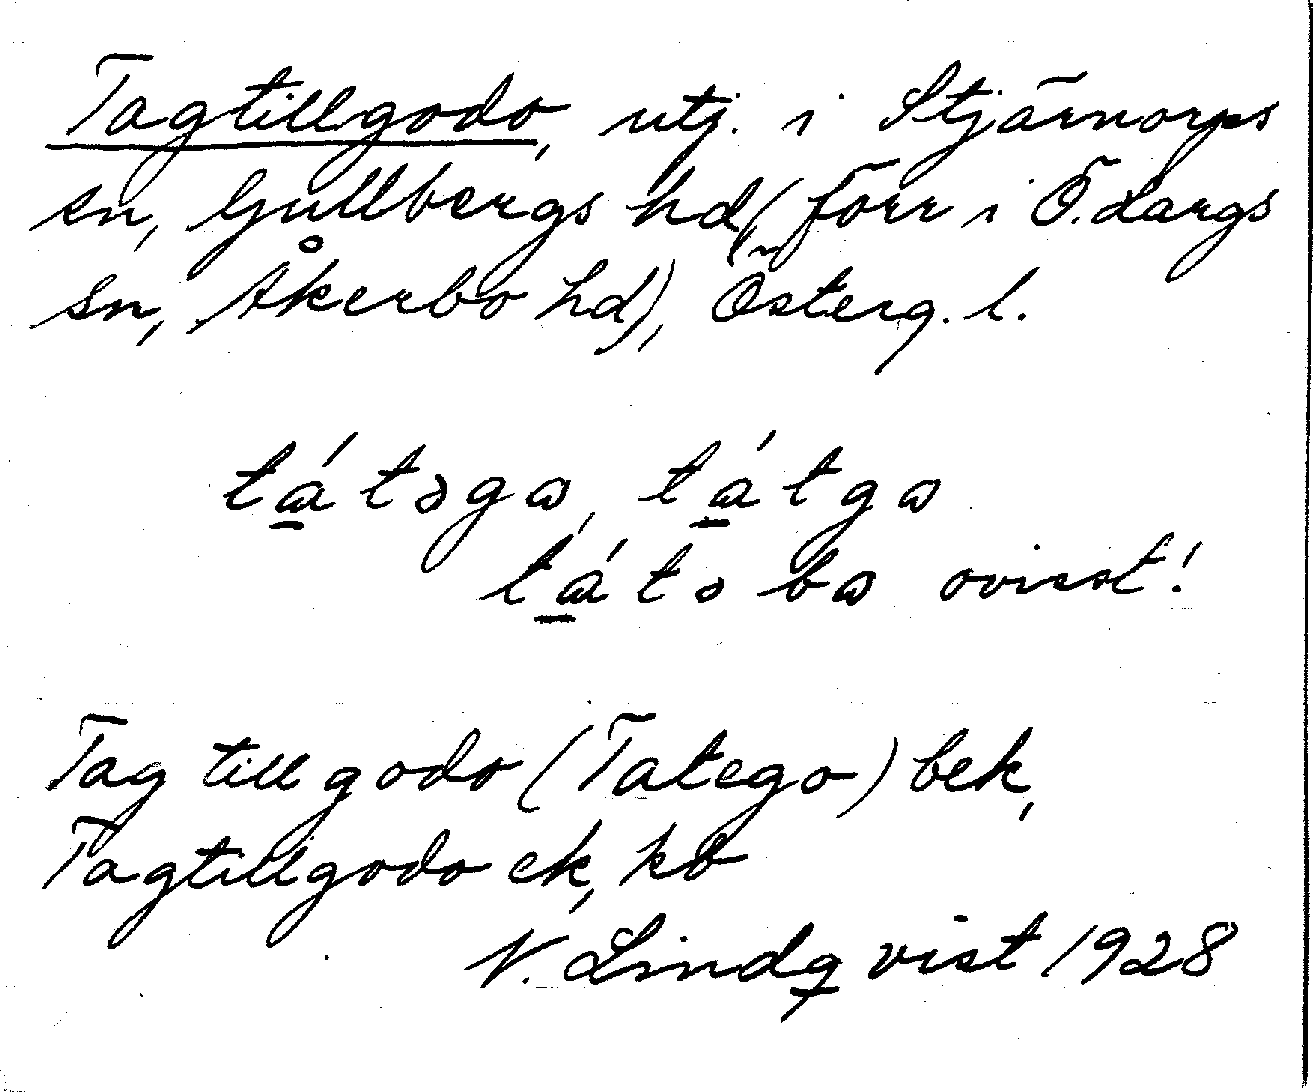 Tagtillgodo, utj. i Stjärnorps
sn, Gullbergs hd (förr i Ö. Largs
sn, Åkerbo hd), Österg. l.
tá̱təgɷ, tá̱tgɷ
tá̱tə bɷ ovisst!
Tag till godo (Tatego) bek,
Tagtillgodo ek, kb
N. Lindqvist 1928